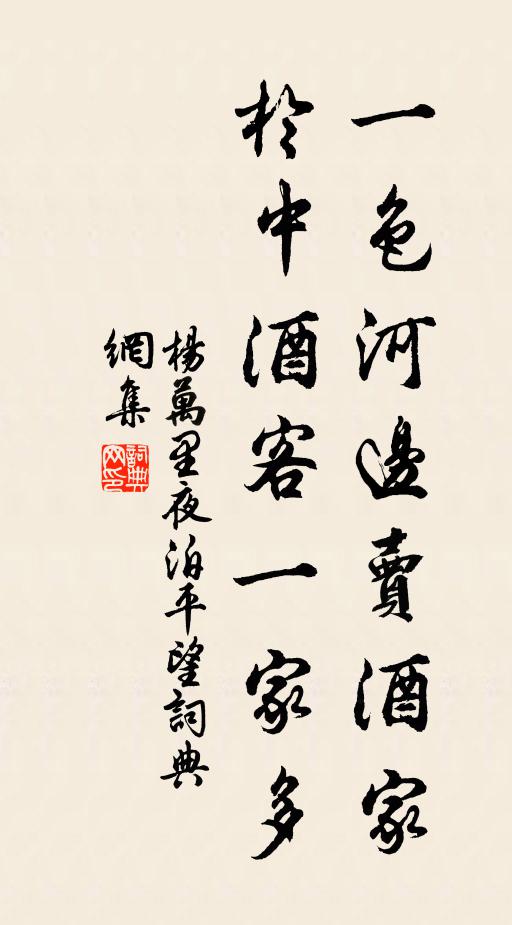 一色河邊賣酒家
於中酒客一家多
楊萬里夜泊平望詞典
網集
詞典
网印